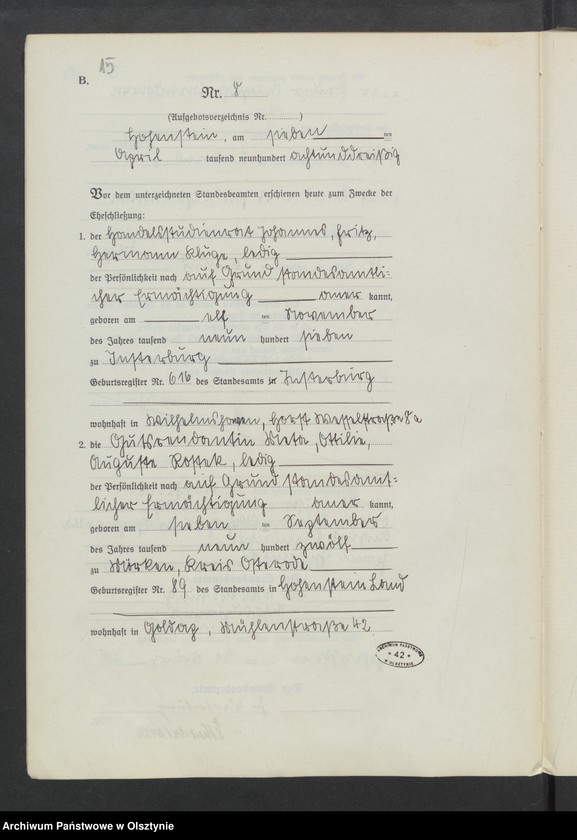 15
B.
Nr. 8
(Aufgebotsverzeichnis Nr. )
Hohenstein, am sieben ten
April tausend neunhundert achtunddreißig
Vor dem unterzeichneten Standesbeamten erschienen heute zum Zwecke der
Eheschließung:
1. der Handelsstudienrat Johannes, Fritz,
Hermann Kluge, ledig
der Persönlichkeit nach auf Grund standesamtli-
cher Ermächtigung aner kannt,
geboren am elf ten November
des Jahres tausend neun hundert sieben
zu Insterburg
Geburtsregister Nr. 616 des Standesamts in Insterburg
wohnhaft in Wilhelmshaven, Horst Wesselstraße 8a
2. die Gutsrendantin Meta, Ottilie,
Auguste Rostek, ledig
der Persönlichkeit nach auf Grund standesamt-
licher Ermächtigung aner kannt,
geboren am sieben ten September
des Jahres tausend neun hundert zwölf
zu Mörken, Kreis Osterode
Geburtsregister Nr. 89 des Standesamts in Hohenstein Land
wohnhaft in Goldap, Mühlenstraße 42
ARCHIWUM PAŃSTWOWE
* 42 *
W OLSZTYNIE
Archiwum Państwowe w Olsztynie